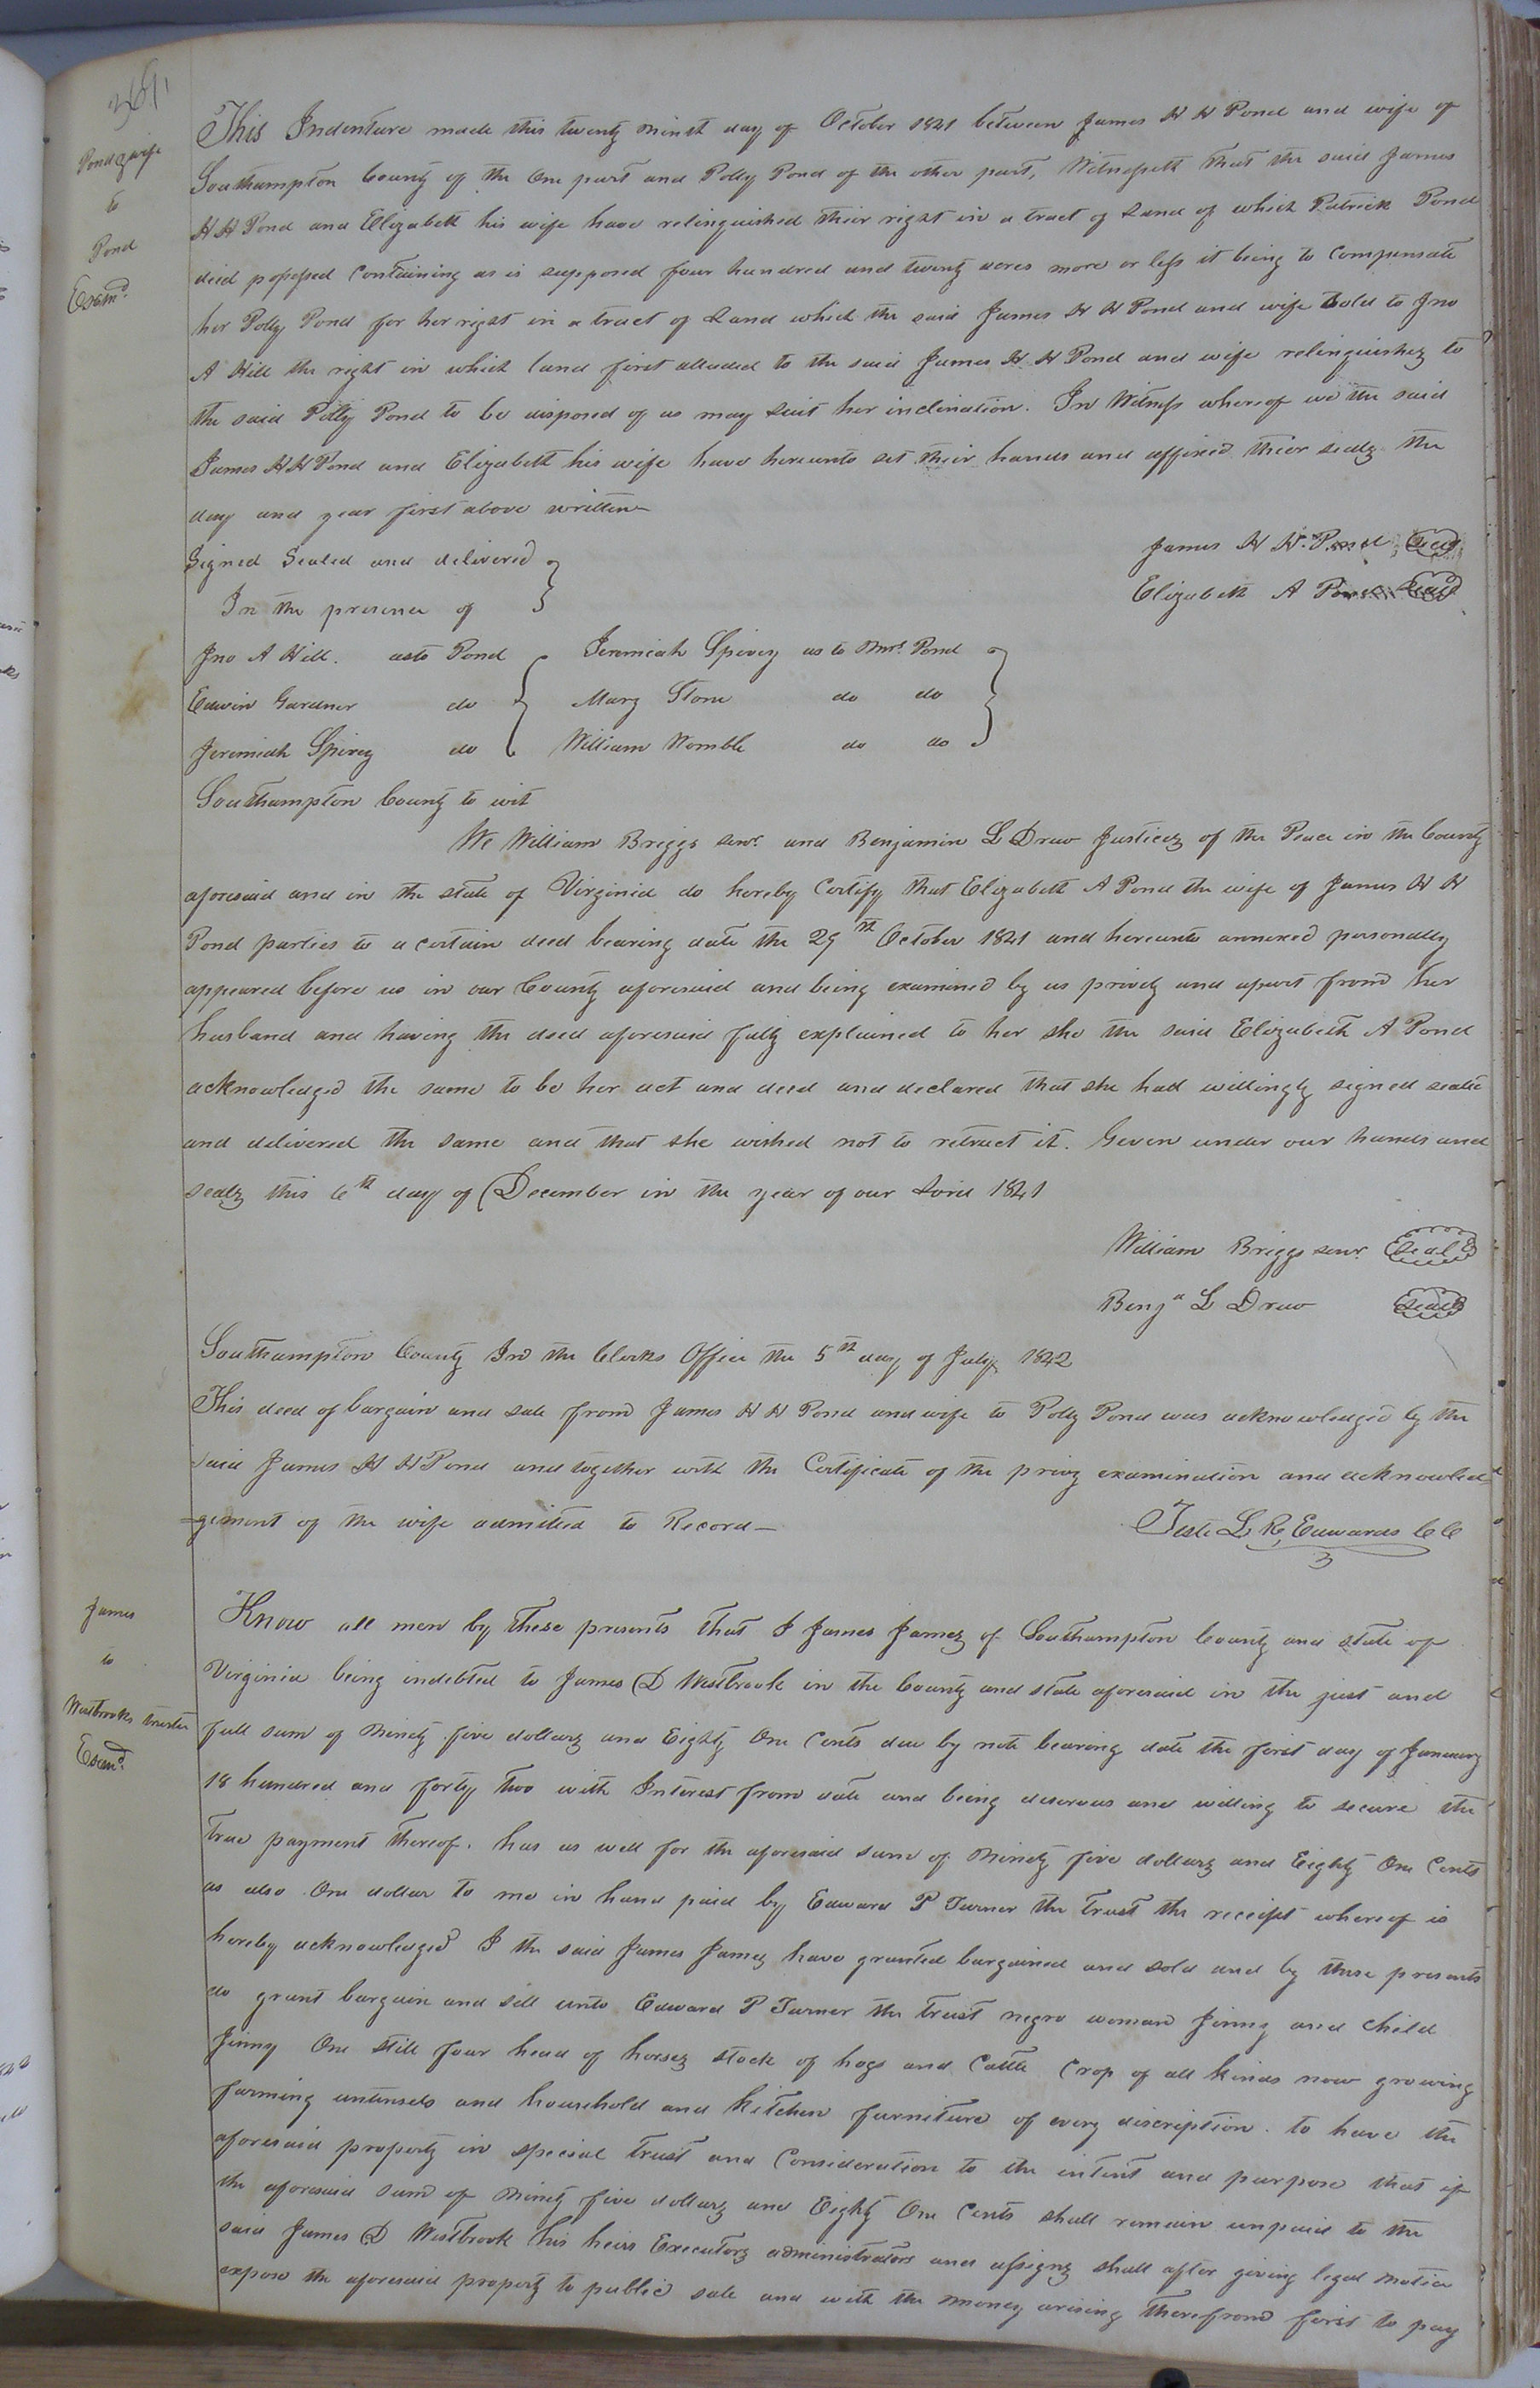 361
Pond & wife
to
Pond
Exam.d
This Indenture made this twenty ninst day of October 1841 between James H H Pond and wife of
Southampton County of the One part and Polly Pond of the other part, Witnesseth that the said James
H H Pond and Elizabeth his wife have relinquished their right in a tract of Land of which Patrick Pond
died possessed Containing as is supposed four hundred and twenty acres more or less it being to Compensate
her Polly Pond for her right in a tract of Land which the said James H H Pond and wife Sold to Jno
A Hill the right in which land first alluded to the said James H H Pond and wife relinquishes to
the said Polly Pond to be disposed of as may suit her inclination. In Witness whereof we the said
James H H Pond and Elizabeth his wife have hereunto set their hands and affixed their seals the
day and year first above written
James H H. Pond Seal
Elizabeth A Pond Seal
Signed Sealed and delivered
In the presence of
Jno A Hill. as to Pond Jeremiah Spivey as to Mrs. Pond
Edwin Gardner do Mary Stone do do
Jeremiah Spivey do William Womble do do
Southampton County to wit
We William Briggs senr. and Benjamin L Drew Justices of the Peace in the County
aforesaid and in the state of Virginia do hereby Certify that Elizabeth A Pond the wife of James H H
Pond parties to a certain deed bearing date the 29th October 1841 and hereunto annexed personally
appeared before us in our County aforesaid and being examined by us privily and apart from her
husband and having the deed aforesaid fully explained to her she the said Elizabeth A Pond
acknowledged the same to be her act and deed and declared that she had willingly signed seald
and delivered the same and that she wished not to retract it. Given under our hands and
seals this 6th day of December in the year of our Lord 1841
William Briggs senr. Seal
Benja L Drew Seal
Southampton County In the Clerks Office the 5th day of July 1842
This deed of bargain and sale from James H H Pond and wife to Polly Pond was acknowledged by the
said James H H Pond and together with the Certificate of the privy examination and acknowled=
=gement of the wife admitted to Record—
Teste L R, Edwards CC
James
to
Westbrooks trustee
Exam.d
Know all men by these presents that I James James of Southampton County and state of
Virginia being indebted to James D Westbrook in the County and state aforesaid in the just and
full sum of Ninety five dollars and Eighty One Cents due by note bearing date the first day of January
18 hundred and forty two with Interest from date and being deserous and willing to secure the
true payment thereof. has as well for the aforesaid sum of Ninety five dollars and Eighty One Cents
as also One dollar to me in hand paid by Edward P Turner the trust the receipt whereof is
hereby acknowledged I the said James James have granted bargained and sold and by these presents
do grant bargain and sell unto Edward P Turner the trust negro woman Jinny and child
Jinny One still four head of horses stock of hogs and Cattle Crop of all kinds now growing
farming untensels and household and Kitchen furniture of every discription. to have the
aforesaid property in special trust and Consideration to the intent and purpose that if
the aforesaid sum of Ninety five dollars and Eighty One Cents shall remain unpaid to the
said James D Westbrook his heirs Executors administrators and assigns shall after giving legal Notice
expose the aforesaid property to public sale and with the money arising therefrom first to pay